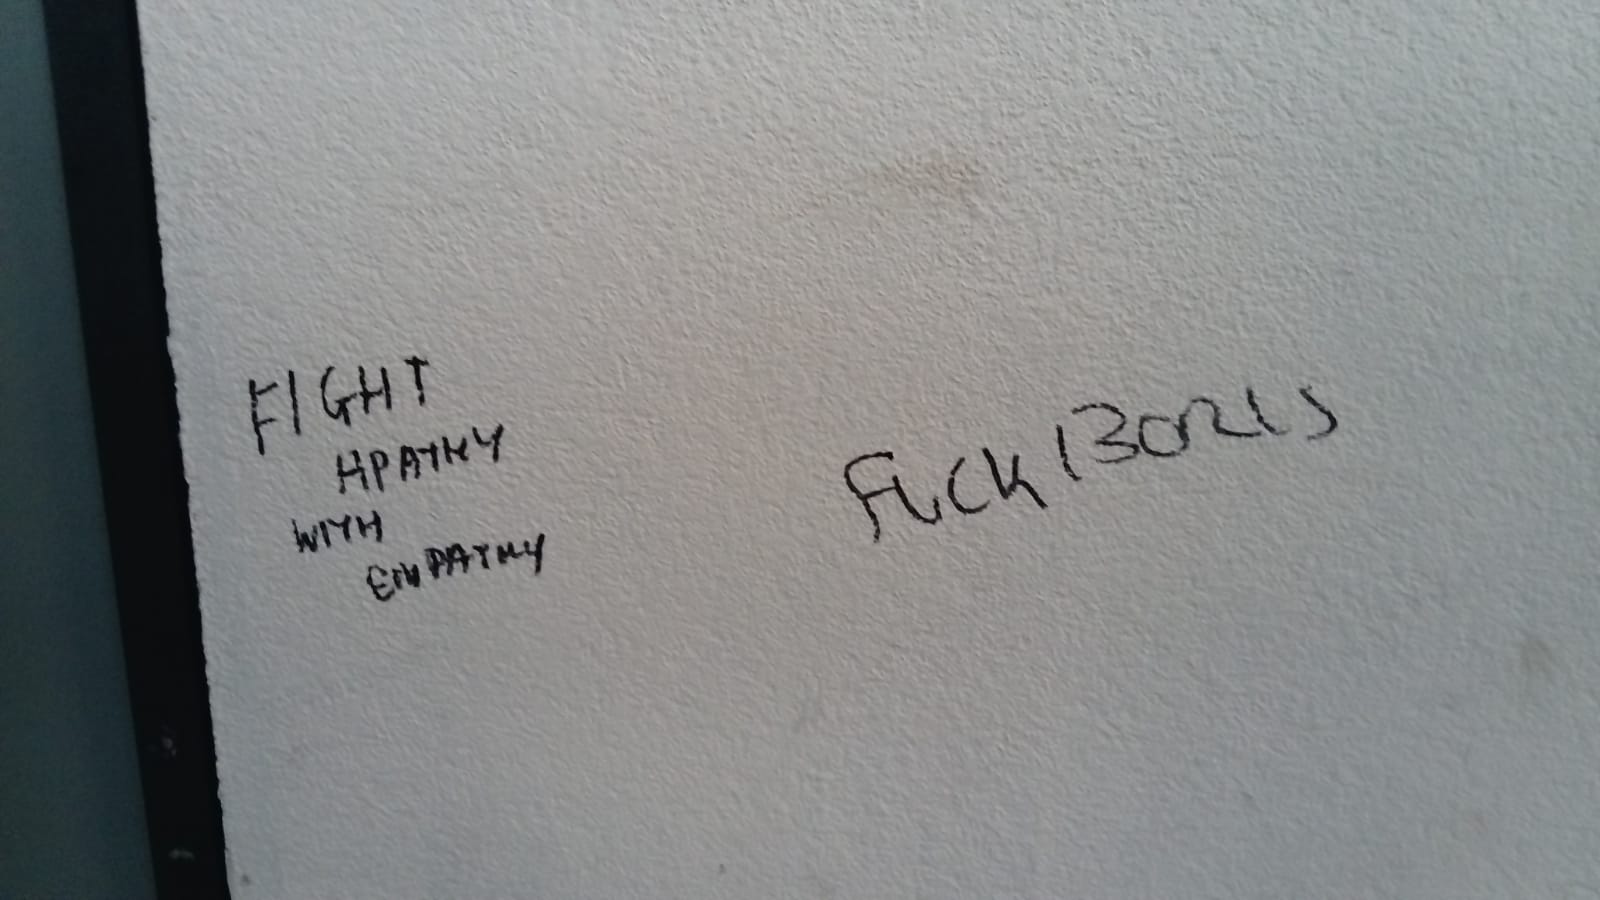 FIGHT
APATHY
WITH
EMPATHY
FUCK BORIS